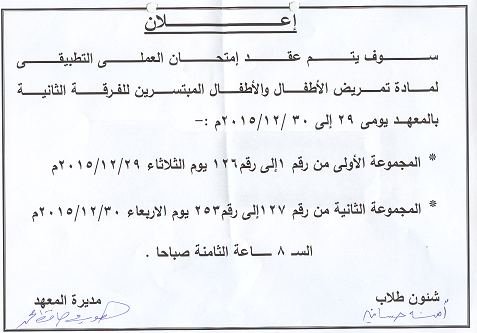 إعـــــلان
ســوف يتــم عقــد إمتحــان العملــى التطبيقــى
لمادة تمريض الأطفال والأطفال المبتسرين للفرقة الثانية
بالمعهـد يومى ٢٩ إلى ٣٠ /٢٠١٥/١٢م :-
* المجموعة الأولى من رقم ١إلى رقم١٢٦ يوم الثلاثاء ٢٠١٥/١٢/٢٩م
* المجموعة الثانية من رقم ١٢٧إلى رقم٢٥٣ يوم الاربعاء ٢٠١٥/١٢/٣٠م
السـ ٨ ـــاعة الثامنة صباحا .
شئون طلاب
مديرة المعهد